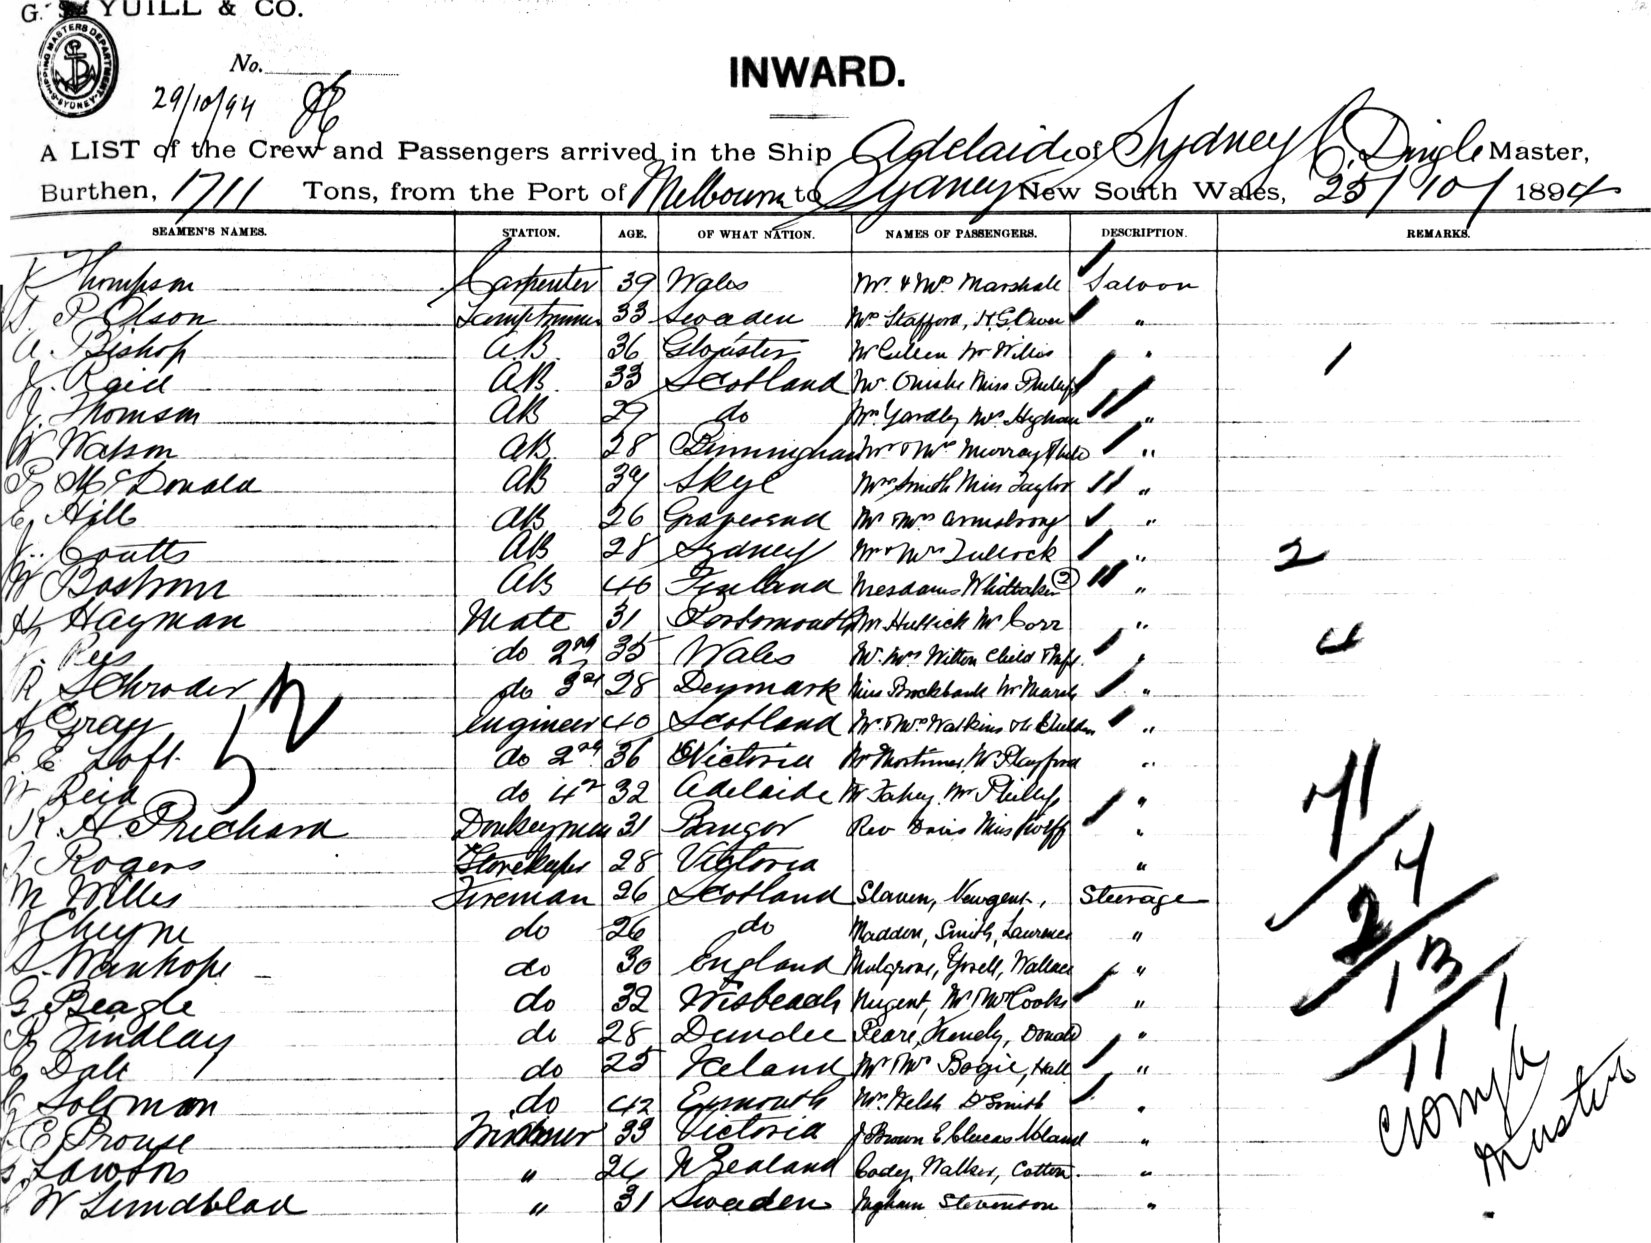 G. S. YUILL & CO.
SHIPPING MASTERS DEPARTMENT SYDNEY
No.
29/10/94
INWARD.
A LIST of the Crew and Passengers arrived in the Ship Adelaide of Sydney C. Dingle Master,
Burthen, 1711 Tons, from the Port of Melbourn to Sydney New South Wales, 25/10/1894
SEAMEN'S NAMES. STATION. AGE. OF WHAT NATION. NAMES OF PASSENGERS. DESCRIPTION. REMARKS.
Thompson Carpenter 39 Wales Mr. & Mrs Marshall Saloon
P Olson Lamptrimmer 33 Sweden Mrs Stafford, H.G. Owen "
A. Bishop A.B. 36 Gloster Mr Cullen Mr Willis " 1
J. Reid A.B. 33 Scotland Mr. Miss Phillips
J. Thomson AB 29 do Mrs Yardley Mrs Higham "
W Watson AB 28 Birmingham Mr & Mrs Murray & "
McDonald AB 39 Skye Mrs Smith Miss Taylor "
E Hill AB 26 Gravesend Mr & Mrs Armstrong "
J. Coutts AB 28 Sydney Mr & Mrs Tullock " 2
W Bostrom AB 40 Finland Mesdames Whittaker (2) "
H Hayman Mate 31 Portsmouth Mr Mr Corr "
Rees do 2nd 35 Wales Mr. Mrs Wilton Child & Inft. " 4
R Schroder do 3rd 28 Denmark Miss Brockbank Mr Marsh "
A Gray 12 Engineer 40 Scotland Mr & Mrs Watkins & 4 Children "
E Loft. do 2nd 36 Victoria Mr Mortimer, Mr Playford "
W Reid do 4th 32 Adelaide Mr Fahey Mr Phillips "
R. H. Prichard Donkeyman 31 Bangor Rev Davis Miss Wolff "
Rogers Storekeeper 28 Victoria "
M Willis Fireman 26 Scotland Slaven, Newgent, Steerage
J Cheyne do 26 do Madden, Smith, Lawrence "
Wauhope do 30 England Mulgrove, Wallace "
G Beagle do 32 Wisbeach Nugent, Mr & Mrs Cooks "
Findlay do 28 Dundee "
C Dale do 25 Iceland Mr & Mrs Bogie, Hall "
Solomon do 42 Eymouth Mrs. Welsh Dr Smith "
E Prouse Trimmer 33 Victoria J Brown E Clucas Noland "
Lawson " 24 N Zealand Cody, Walker, Cotton "
W Lundblad " 31 Sweden Ingham Stevenson "
71
4
2
13
11
1